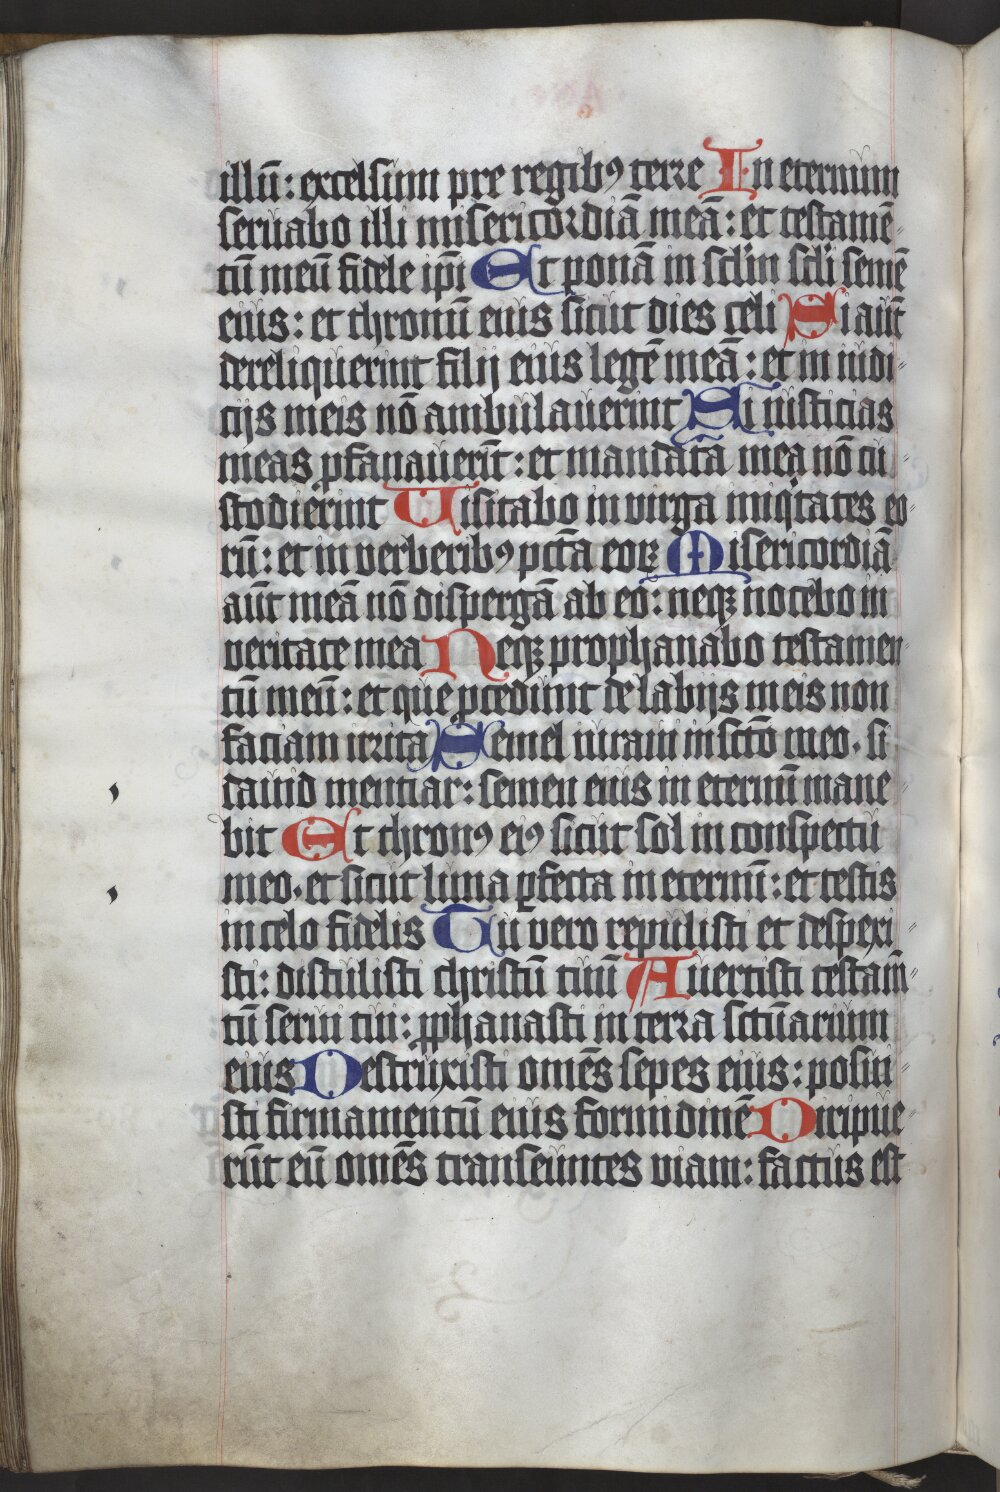 illū: excelsum pre regibꝰ terre In eternum
seruabo illi misericordiā meā: et testamē
tū meū fidele ip̄i Et ponā in sc̄lm sc̄li semē
eius: et thronū eius sicut dies celi Si aūt
dereliquerint filij eius legē meā: et in iudi
cijs meis nō ambulauerint Si iusticias
meas ꝓfanauerīt: et mandata mea nō cu
stodierint Uisitabo in virga iniqͥtates eo
rū: et in verberibꝰ pctā eoꝝ Misericordiā
aūt meā nō dispergā ab eo: neqꝫ nocebo in
veritate mea Neqꝫ prophanabo testamen
tū meū: et que ꝓcedunt de labijs meis non
faciam irrita Semel iuraui in sctō meo. si
dauid mentiar: semen eius in eternū mane
bit Et thronꝰ eiꝰ sicut sol in conspectu
meo. et sicut luna ꝑfecta in eternū: et testis
in celo fidelis Tu vero repulisti et despexi
sti: distulisti christū tuū Auertisti testam̄
tū serui tui: ꝓphanasti in terra sctūarium
eius Destruxisti omēs sepes eius: posui
sti firmamentū eius formidinē Diripue
rūt eū omēs transeuntes viam: factus est